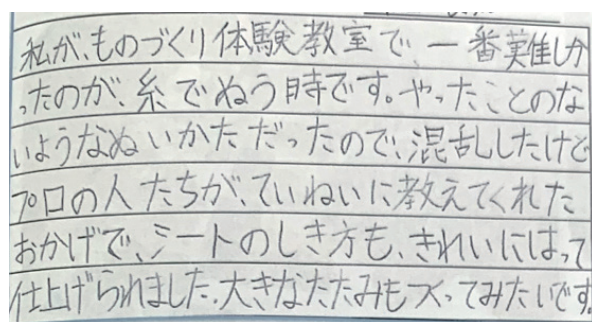 私が、ものづくり体験教室で、一番難しか
ったのが、糸でぬう時です。やったことのな
いようなぬいかただったので、混乱したけど
プロの人たちが、ていねいに教えてくれた
おかげで、シートのしき方も、きれいにはって
仕上げられました。大きなたたみもつくってみたいです。